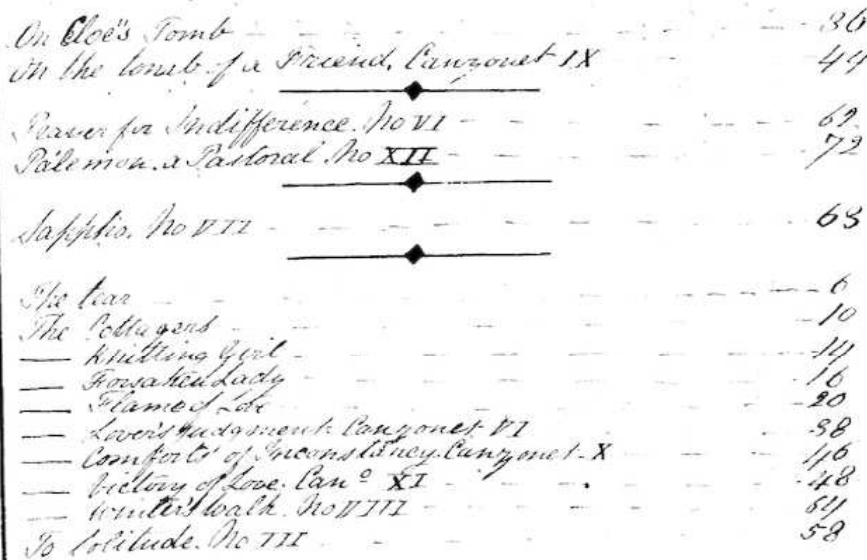 On Cloe's Tomb 36
On the tomb of a Friend. Canzonet IX 44
Prayer for Indifference. No VI 62
Palemon. a Pastoral No XII 72
Sappho. No VII 63
The tear 6
The Cottagers 10
— Knitting Girl 14
— Forsaken Lady 16
— Flame of Love 20
— Lover's Judgment Canzonet VI 38
— Comforts of Inconstancy Canzonet X 46
— Victory of Love. Canº XI 48
— Winter's walk. No VIII 64
To Solitude. No III 58